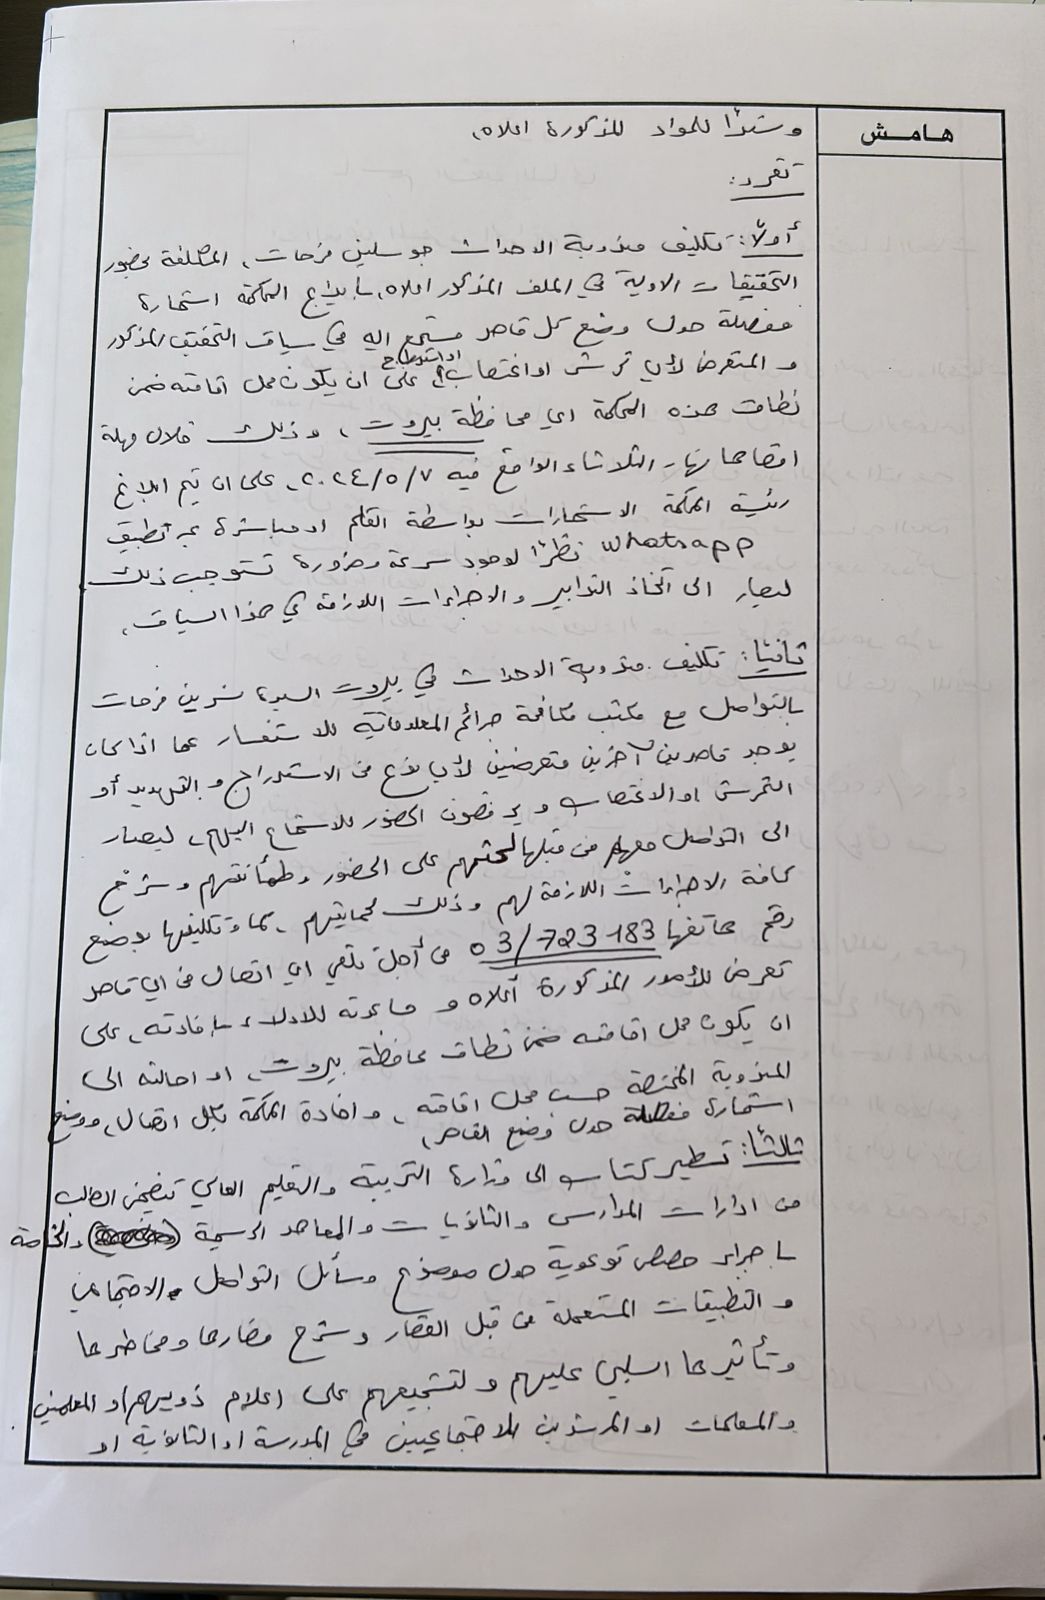 هامش
وسنداً للمواد المذكورة اعلاه،
تقرر:
أولاً: تكليف مندوبة الاحداث جوسلين فرحات، المكلفة بحضور
التحقيقات الاولية في الملف المذكور اعلاه، بايداع المحكمة استمارة
مفصلة حول وضع كل قاصر مستمع اليه في سياق التحقيق المذكور
و المتعرض لأي تحرش او اغتصاب او استدراج على ان يكون محل اقامته ضمن
نطاق هذه المحكمة اي محافظة بيروت، وذلك خلال مهلة
اقصاها نهار الثلاثاء الواقع فيه ٢٠٢٤/٥/٧، على ان يتم ابلاغ
رئيسة المحكمة الاستمارات بواسطة القلم او مباشرة عبر تطبيق
whatsapp نظراً لوجود سرعة وضرورة تستوجب ذلك
ليصار الى اتخاذ التدابير والاجراءات اللازمة في هذا السياق.
ثانياً: تكليف مندوبة الاحداث في بيروت السيدة نسرين فرحات
بالتواصل مع مكتب مكافحة جرائم المعلوماتية للاستفسار عما اذا كان
يوجد قاصرين آخرين متعرضين لأي نوع من الاستدراج والتهديد أو
التحرش او الاغتصاب ويرفضون الحضور للاستماع اليهم، ليصار
الى التواصل معهم من قبلها لحثهم على الحضور وطمأنتهم وشرح
كافة الاجراءات اللازمة لهم وذلك لحمايتهم، كما وتكليفها بوضع
رقم هاتفها 03/723183 من أجل تلقي اي اتصال من اي قاصر
تعرض للأمور المذكورة أعلاه و مساعدته للادلاء بإفادته، على
ان يكون محل اقامته ضمن نطاق محافظة بيروت، او احالته الى
المندوبة المختصة حسب محل اقامته، و افادة المحكمة بكل اتصال، ووضع
استمارة مفصلة حول وضع القاصر،
ثالثاً: تسطير كتاب الى وزارة التربية والتعليم العالي تتضمن الطلب
من ادارات المدارس والثانويات والمعاهد الرسمية والخاصة
باجراء حصص توعوية حول موضوع وسائل التواصل الاجتماعي
و التطبيقات المستعملة من قبل القصار وشرح مضارها ومخاطرها
وتأثيرها السلبي عليهم ولتشجيعهم على اعلام ذويهم او المعلمين
والمعلمات او المرشدين الاجتماعيين في المدرسة او الثانوية او